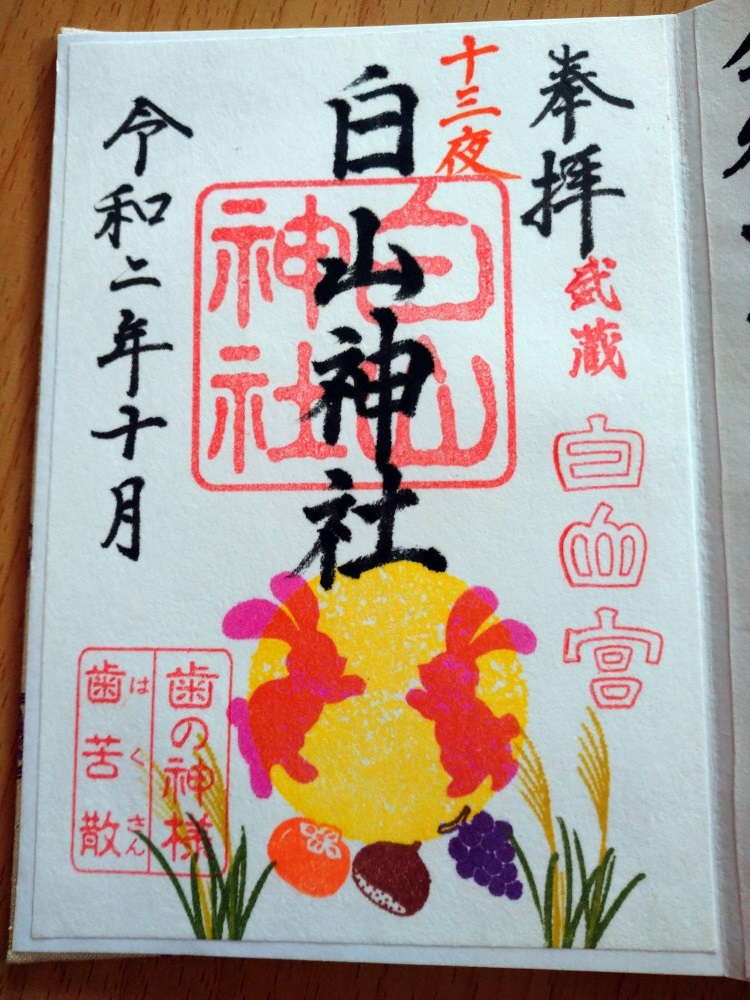 奉拝
武蔵
白山宮
十三夜
白山神社
白山
神社
歯の神様
歯苦散
はくさん
令和二年十月